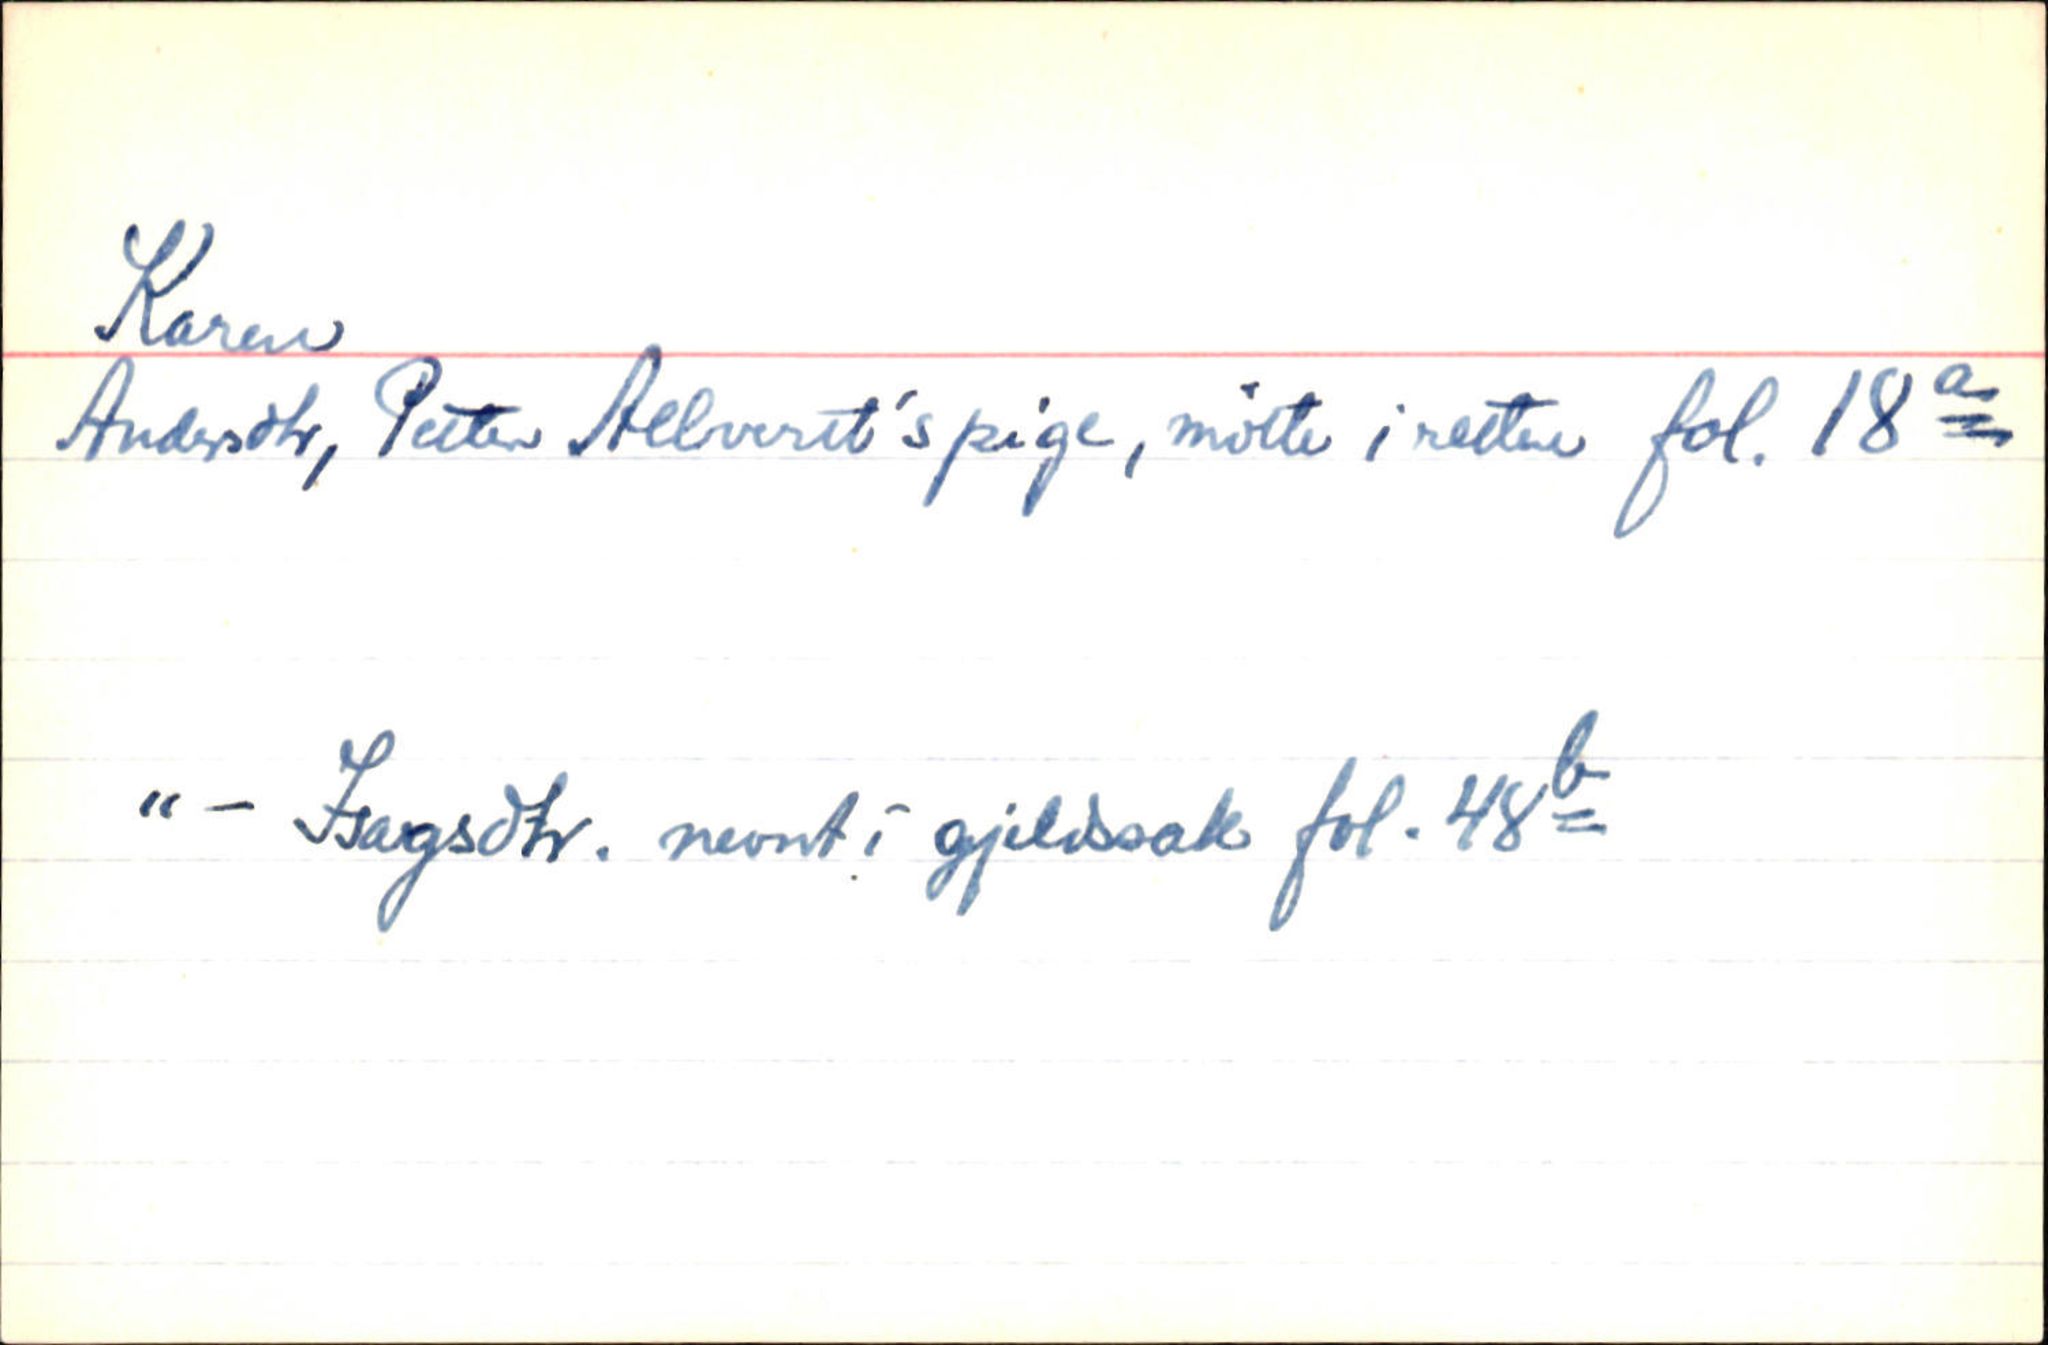 Karen
Andersdtr, Petter Allverst's pige, mötte i retten fol. 18a
"- Isagsdtr. nevnt i gjeldssak fol. 48b